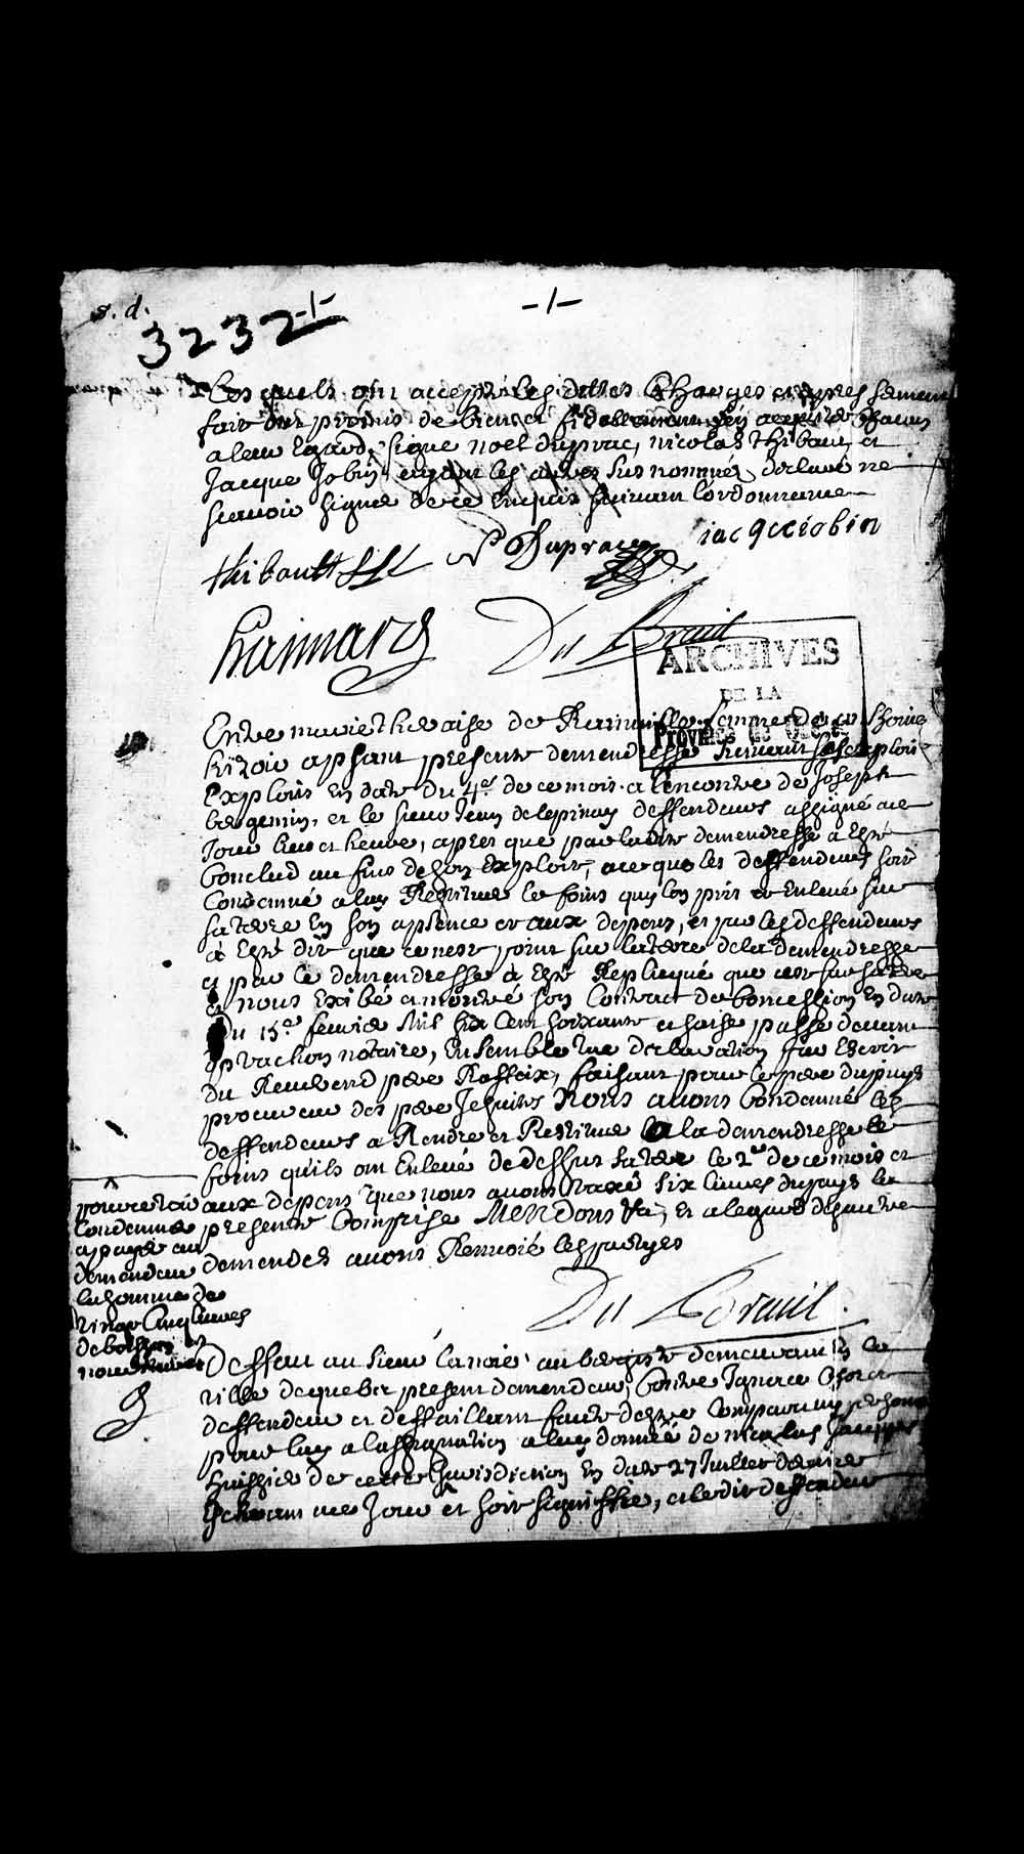 s. d.
3232-1-
-1-
Les quels ont accepté les dittes Charges et apres serment
fait ont promis de bien et fidellement sen chacun
a leur Egard, signé noel duprac, nicolas thibault et
Jacque Jobin et les autres sus nommés declaré ne
scavoir signer de ce Enquis suivant lordonnance
thibault
Duprac
iacqueiobin
haimard
Du Breuil
ARCHIVES
DE LA
PROVINCE DE QUEBEC
Entre marie theraise de Ramme de
apsant presente demendresse
Exploits En date du 4e de ce mois a lencontre de Joseph
bergemin, et le sieur Jean delepinay deffendeurs assigné a ce
Jour lieu et heure, apres que par laditte demendresse a Esté
Conclud au fins de son Exploit, a ce que les deffendeurs soit
Condamné a luy Restitue le foins quils on pris et Enlevé sur
sa terre En son apsence et aux depens, et par les deffendeurs
à Esté dit que ce nest point sur la terre de la demendresse
et par le demendresse à Esté Replicqué que cest sur sa terre
et nous Exibé et montré son Contract de Concession En date
du 15e fevrie Mil six Cent soixante et saise passé devant
Vachon notaire, Ensemble une declaration par Escrit
du Reverend père Raffeix, faisant pour le père dupuys
procureur des père Jesuites Nous avons Condamné les
deffendeurs a Rendre et Restitue a la demendresse le
foins qu'ils ont Enlevé de dessus sa terre le 2e de ce mois et
aux depens que nous avons taxé six livres du pays la
presente Comprise MENDONS &a, Et a legard des autre
demendes avons Renvoié les partyes
Du Breuil
pouvre
Condamné
a payé au
demendeur
la somme de
vingt Cinq livres
Deffaut au sieur Lanoie aubergiste demeurant En ce
ville de quebec present demendeur, Contre Ignace
deffendeur et deffaillant faute destre Comparu ny personne
pour luy a lassignation a luy donné de nicolas
huissier de cette Jurisdiction En date 27 Juillet dernier
Echeant a ce Jour et soit signiffié, a ledit deffendeur